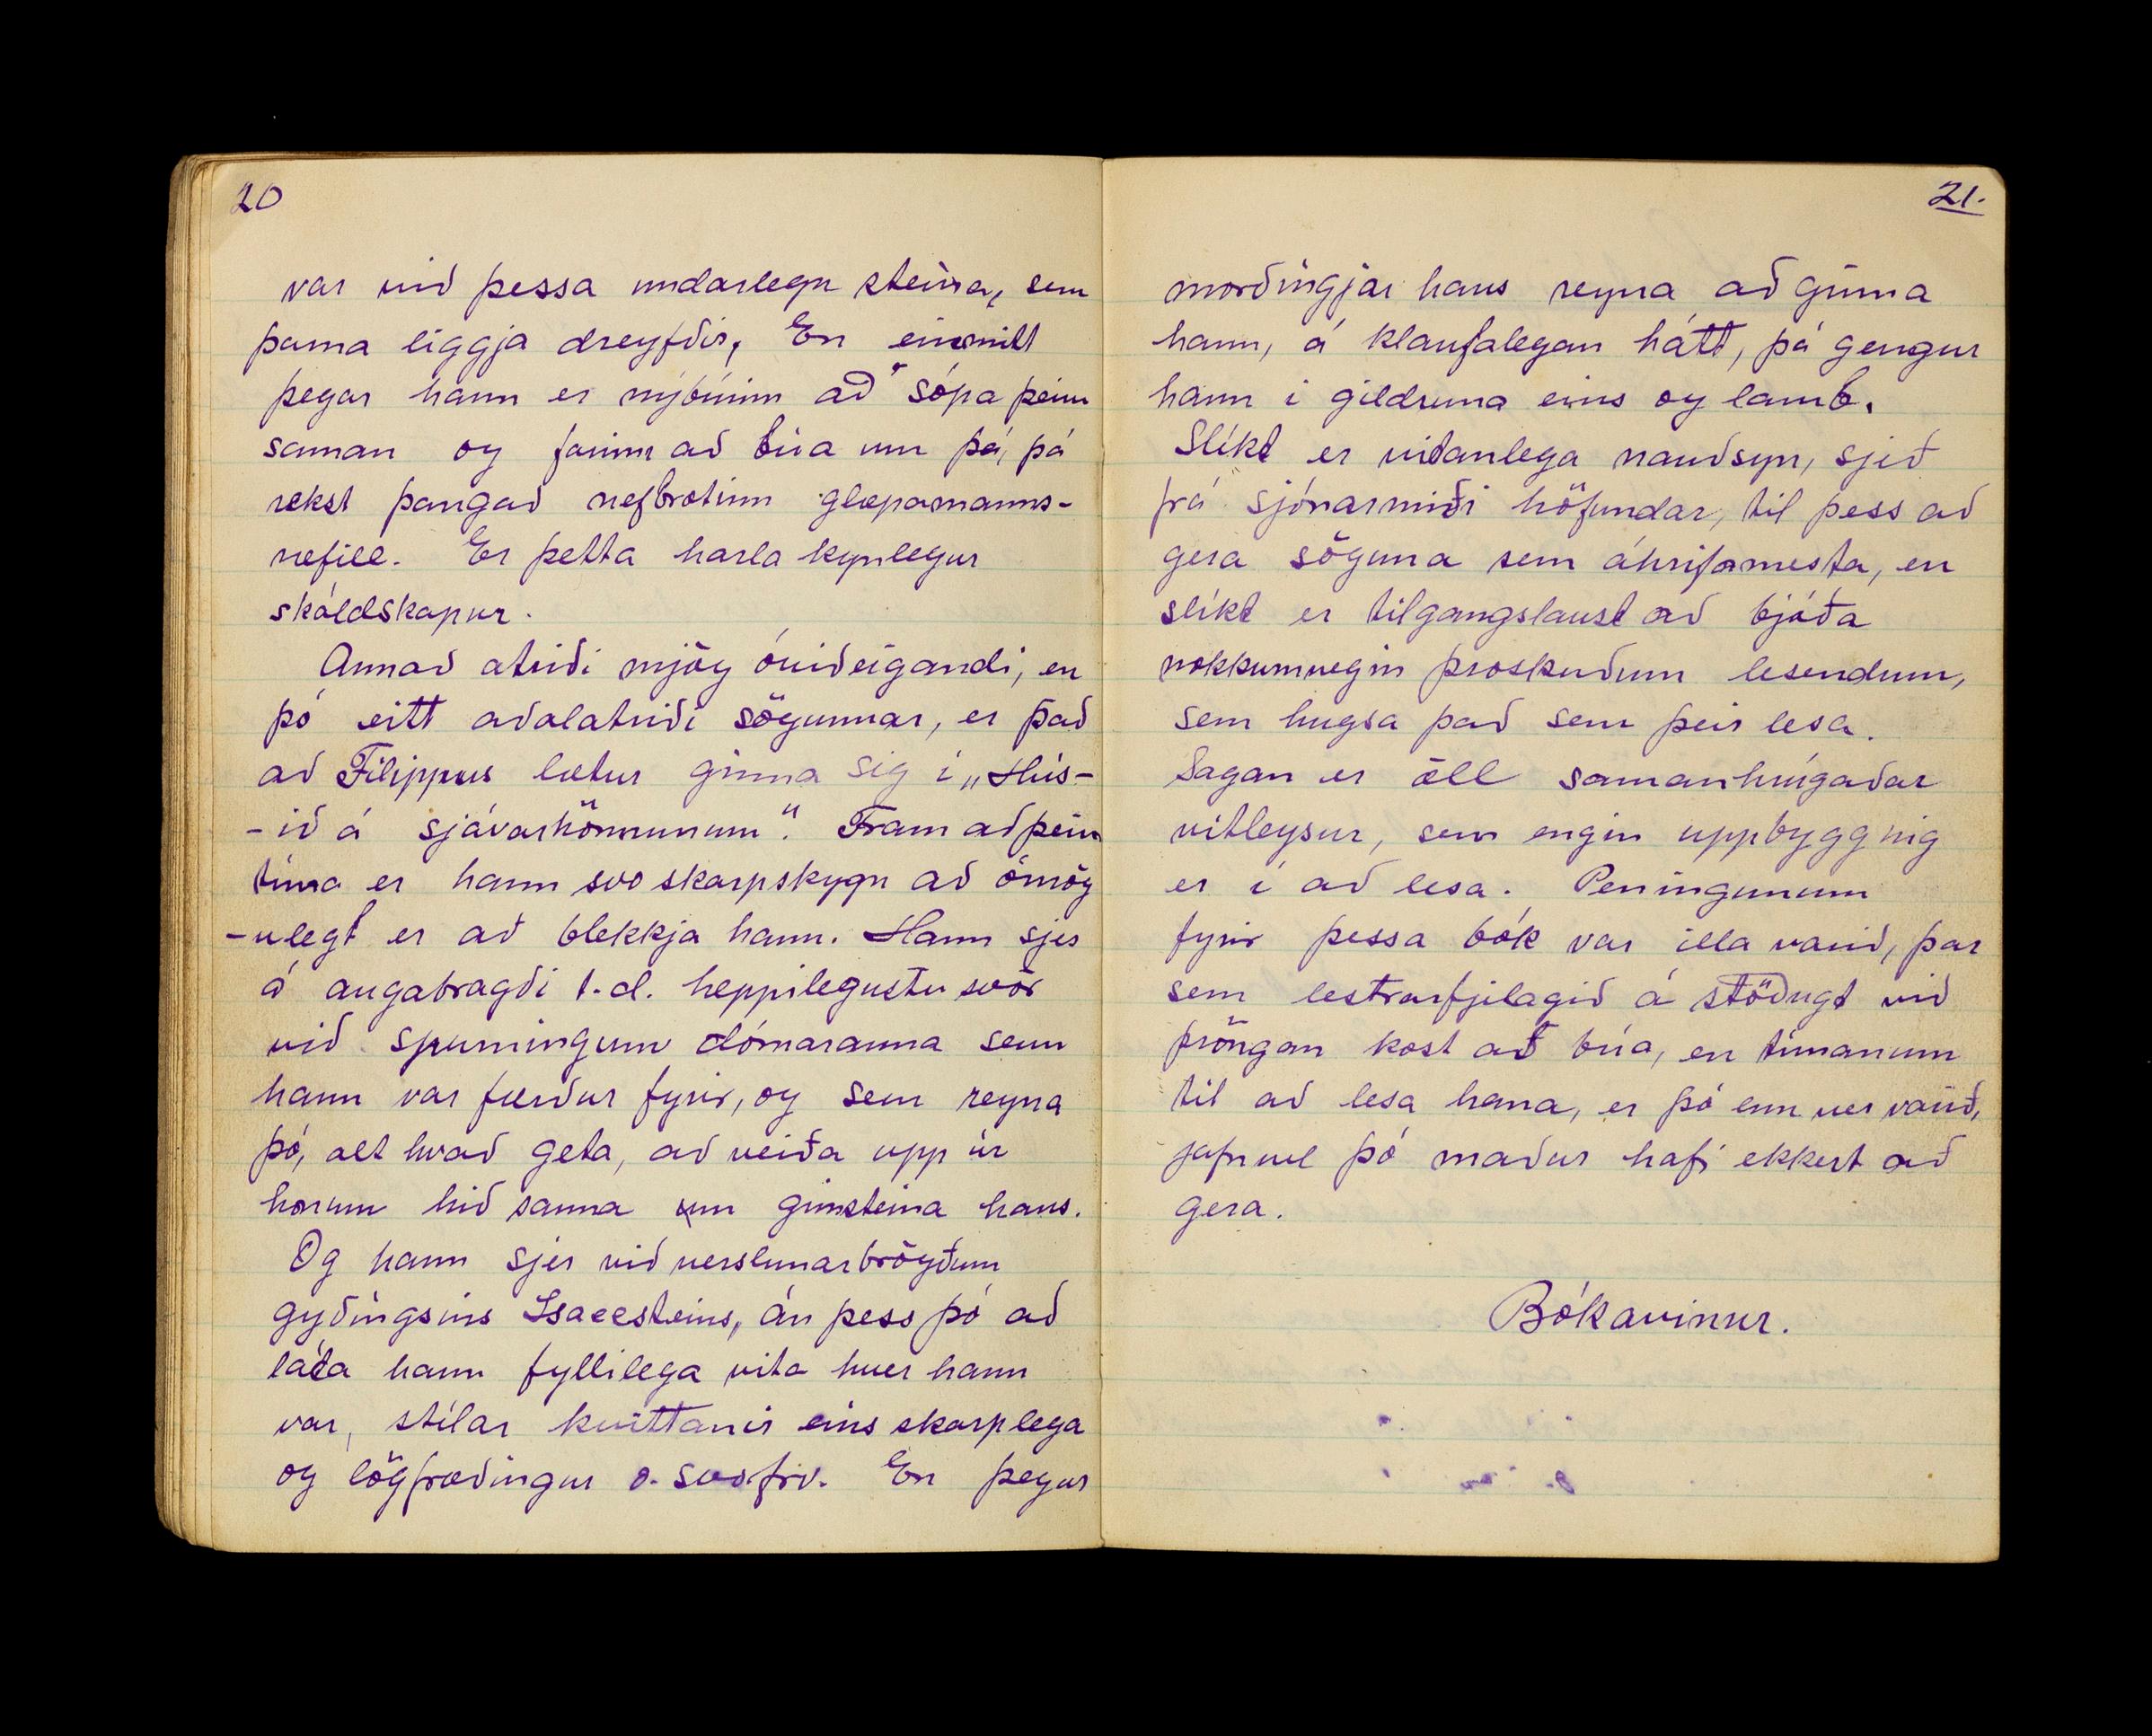 20
var við þessa undarlegu steina, sem
þarna liggja dreyfðir, En einmitt
þegar hann er nýbúinn að sópa þeim
saman og farinn að búa um þá, þá
rekst þangað nefbrotinn glæpamanns-
nefill. Er þetta harla kynlegur
skáldskapur.
Annað atriði mjög óviðeigandi, en
þó eitt aðalatriði sögunnar, er það
að Filippus lætur ginna sig í „Hús-
-ið á sjávarhömrunum“. Fram að þeim
tíma er hann svo skarpskygn að ómög
-ulegt er að blekkja hann. Hann sjer
á augabragði t.d. heppilegustu svör
við spurningum dómaranna sem
hann var færður fyrir, og sem reyna
þó, alt hvað geta, að veiða upp úr
honum hið sanna um gimsteina hans.
Og hann sjer við verslunarbrögðum
gyðingsins Isaccsteins, án þess þó að
láta hann fyllilega vita hver hann
var, stílar kvittanir eins skarplega
og lögfræðingur o. svo.frv. En þegar
21.
morðingjar hans reyna að ginna
hann, á klaufalegan hátt, þá gengur
hann í gildruna eins og lamb.
Slíkt er vitanlega nauðsyn, sjeð
frá sjónarmiði höfundar, til þess að
gera söguna sem áhrifamesta, en
slíkt er tilgangslaust að bjóða
nokkurnvegin þroskuðum lesendum,
sem hugsa það sem þeir lesa.
Sagan er öll samanhrúgaðar
vitleysur, sem engin uppbygging
er í að lesa. Peningunum
fyrir þessa bók var illa varið, þar
sem lestrarfjelagið á stöðugt við
þröngan kost að búa, en tímanum
til að lesa hana, er þó enn ver varið,
jafnvel þó maður hafi ekkert að
gera.
Bókavinur.